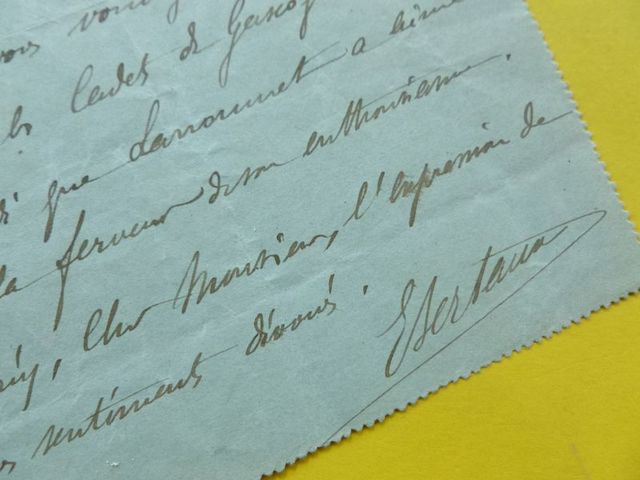 vous
les Cadets de Gascog
que Larroumet a aimé
la ferveur de son enthousiasme.
Cher Monsieur, l'expression de
sentiments dévoués.
EBertaua